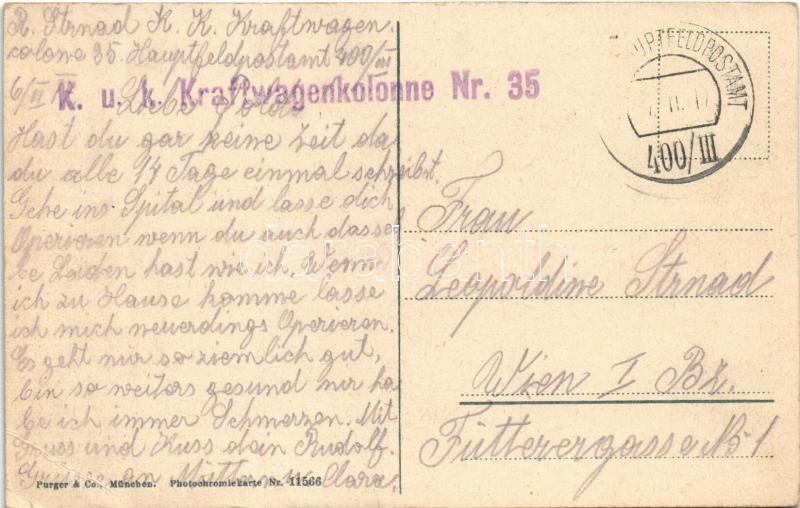 R. Strnad K. K. Kraftwagen
colone 35. Hauptfeldpostamt 400/III
6/II
K. u. k. Kraftwagenkolonne Nr. 35
Liebe Poldi
Hast du gar keine Zeit da
du alle 14 Tage einmal schreibst.
Gehe ins Spital und lasse dich
Operieren wenn du auch dassel
be Leiden hast wie ich. Wenn
ich zu Hause komme lasse
ich mich neuerdings Operieren.
Es geht mir so ziemlich gut,
bin so weiters gesund nur ha
be ich immer Schmerzen. Mit
Gruss und Kuss dein Rudolf.
Grüsse an Mutter u. Clara.
Purger & Co., München. Photochromiekarte Nr. 11566
HAUPTFELDPOSTAMT
II. 17
400/III
Frau
Leopoldine Strnad
Wien I Bz.
Fütterergasse No 1
darabanth